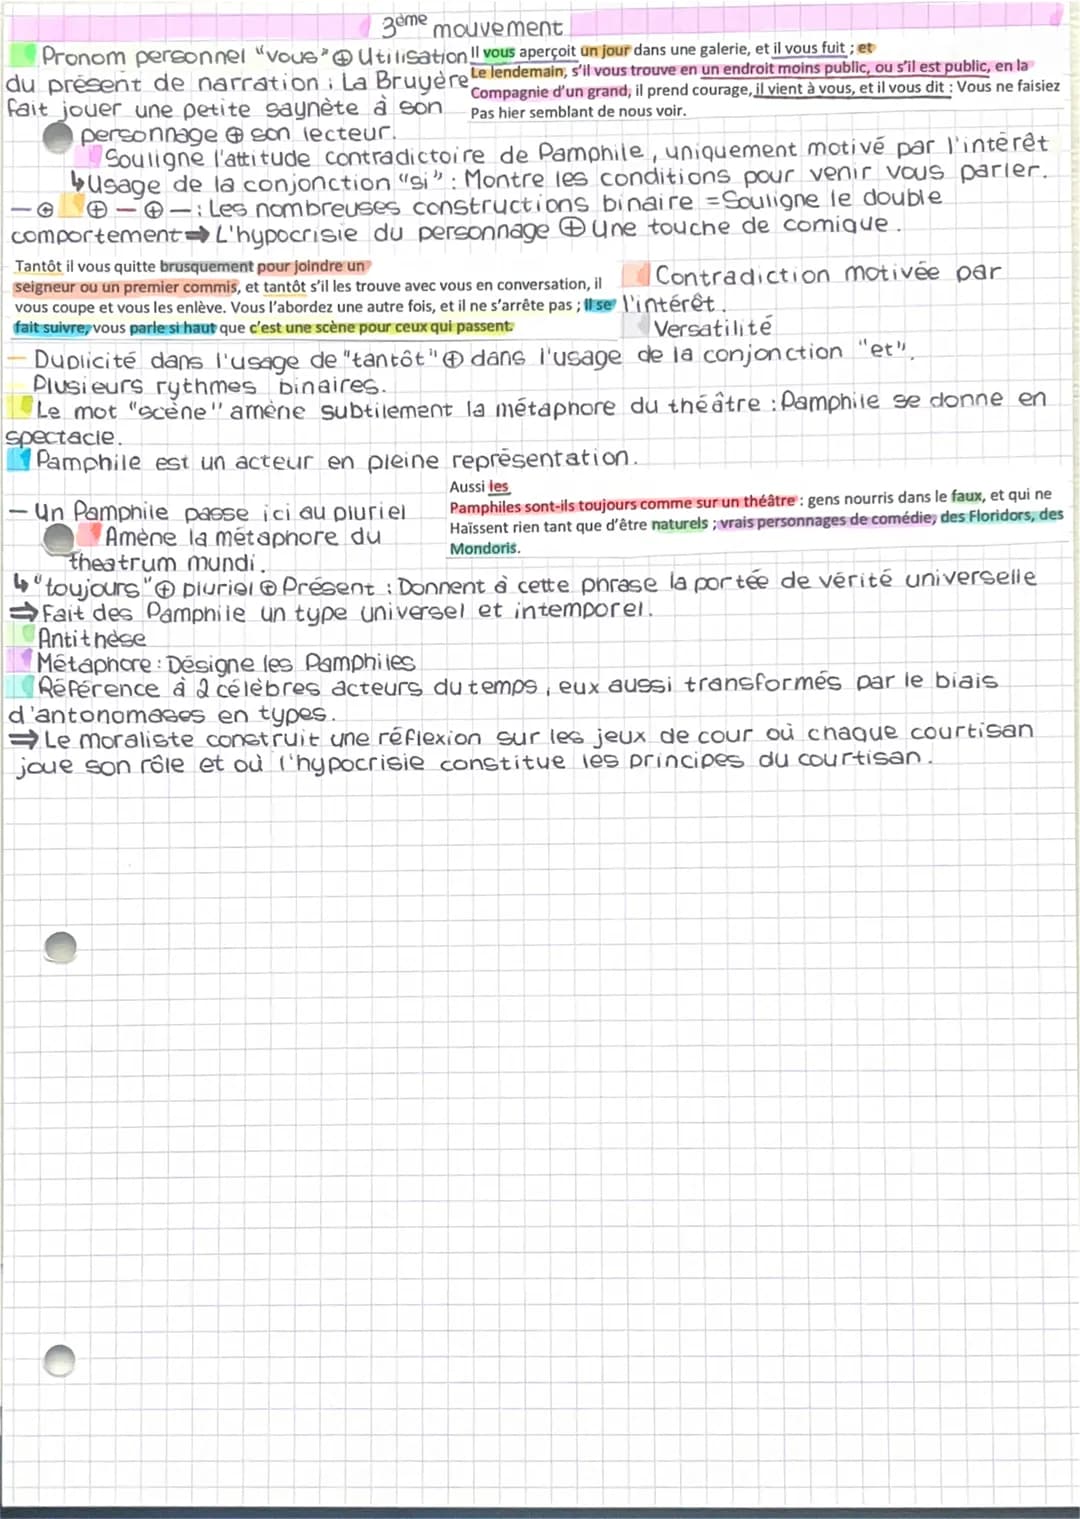 3ème mouvement
Pronom personnel "vous" ⊕ Utilisation
du présent de narration : La Bruyère
fait jouer une petite saynète à son
personnage ⊕ son lecteur.
Il vous aperçoit un jour dans une galerie, et il vous fuit ; et
Le lendemain, s'il vous trouve en un endroit moins public, ou s'il est public, en la
Compagnie d'un grand, il prend courage, il vient à vous, et il vous dit : Vous ne faisiez
Pas hier semblant de nous voir.
Souligne l'attitude contradictoire de Pamphile, uniquement motivé par l'intérêt
↳Usage de la conjonction "si" : Montre les conditions pour venir vous parler.
— ⊕ ⊕ — ⊕ — : Les nombreuses constructions binaire = Souligne le double
comportement ⇒ L'hypocrisie du personnage ⊕ une touche de comique.
Tantôt il vous quitte brusquement pour joindre un
seigneur ou un premier commis, et tantôt s'il les trouve avec vous en conversation, il
vous coupe et vous les enlève. Vous l'abordez une autre fois, et il ne s'arrête pas ; Il se
fait suivre, vous parle si haut que c'est une scène pour ceux qui passent.
Contradiction motivée par
l'intérêt.
Versatilité
— Duplicité dans l'usage de "tantôt" ⊕ dans l'usage de la conjonction "et".
— Plusieurs rythmes binaires.
Le mot "scène" amène subtilement la métaphore du théâtre : Pamphile se donne en
spectacle.
Pamphile est un acteur en pleine représentation.
Aussi les
Pamphiles sont-ils toujours comme sur un théâtre : gens nourris dans le faux, et qui ne
Haïssent rien tant que d'être naturels ; vrais personnages de comédie, des Floridors, des
Mondoris.
— Un Pamphile passe ici au pluriel
Amène la métaphore du
theatrum mundi.
↳ "toujours" ⊕ pluriel ⊕ Présent : Donnent à cette phrase la portée de vérité universelle
⇒ Fait des Pamphile un type universel et intemporel.
Antithèse
Métaphore : Désigne les Pamphiles
Référence à 2 célèbres acteurs du temps, eux aussi transformés par le biais
d'antonomases en types.
⇒ Le moraliste construit une réflexion sur les jeux de cour où chaque courtisan
joue son rôle et où l'hypocrisie constitue les principes du courtisan.